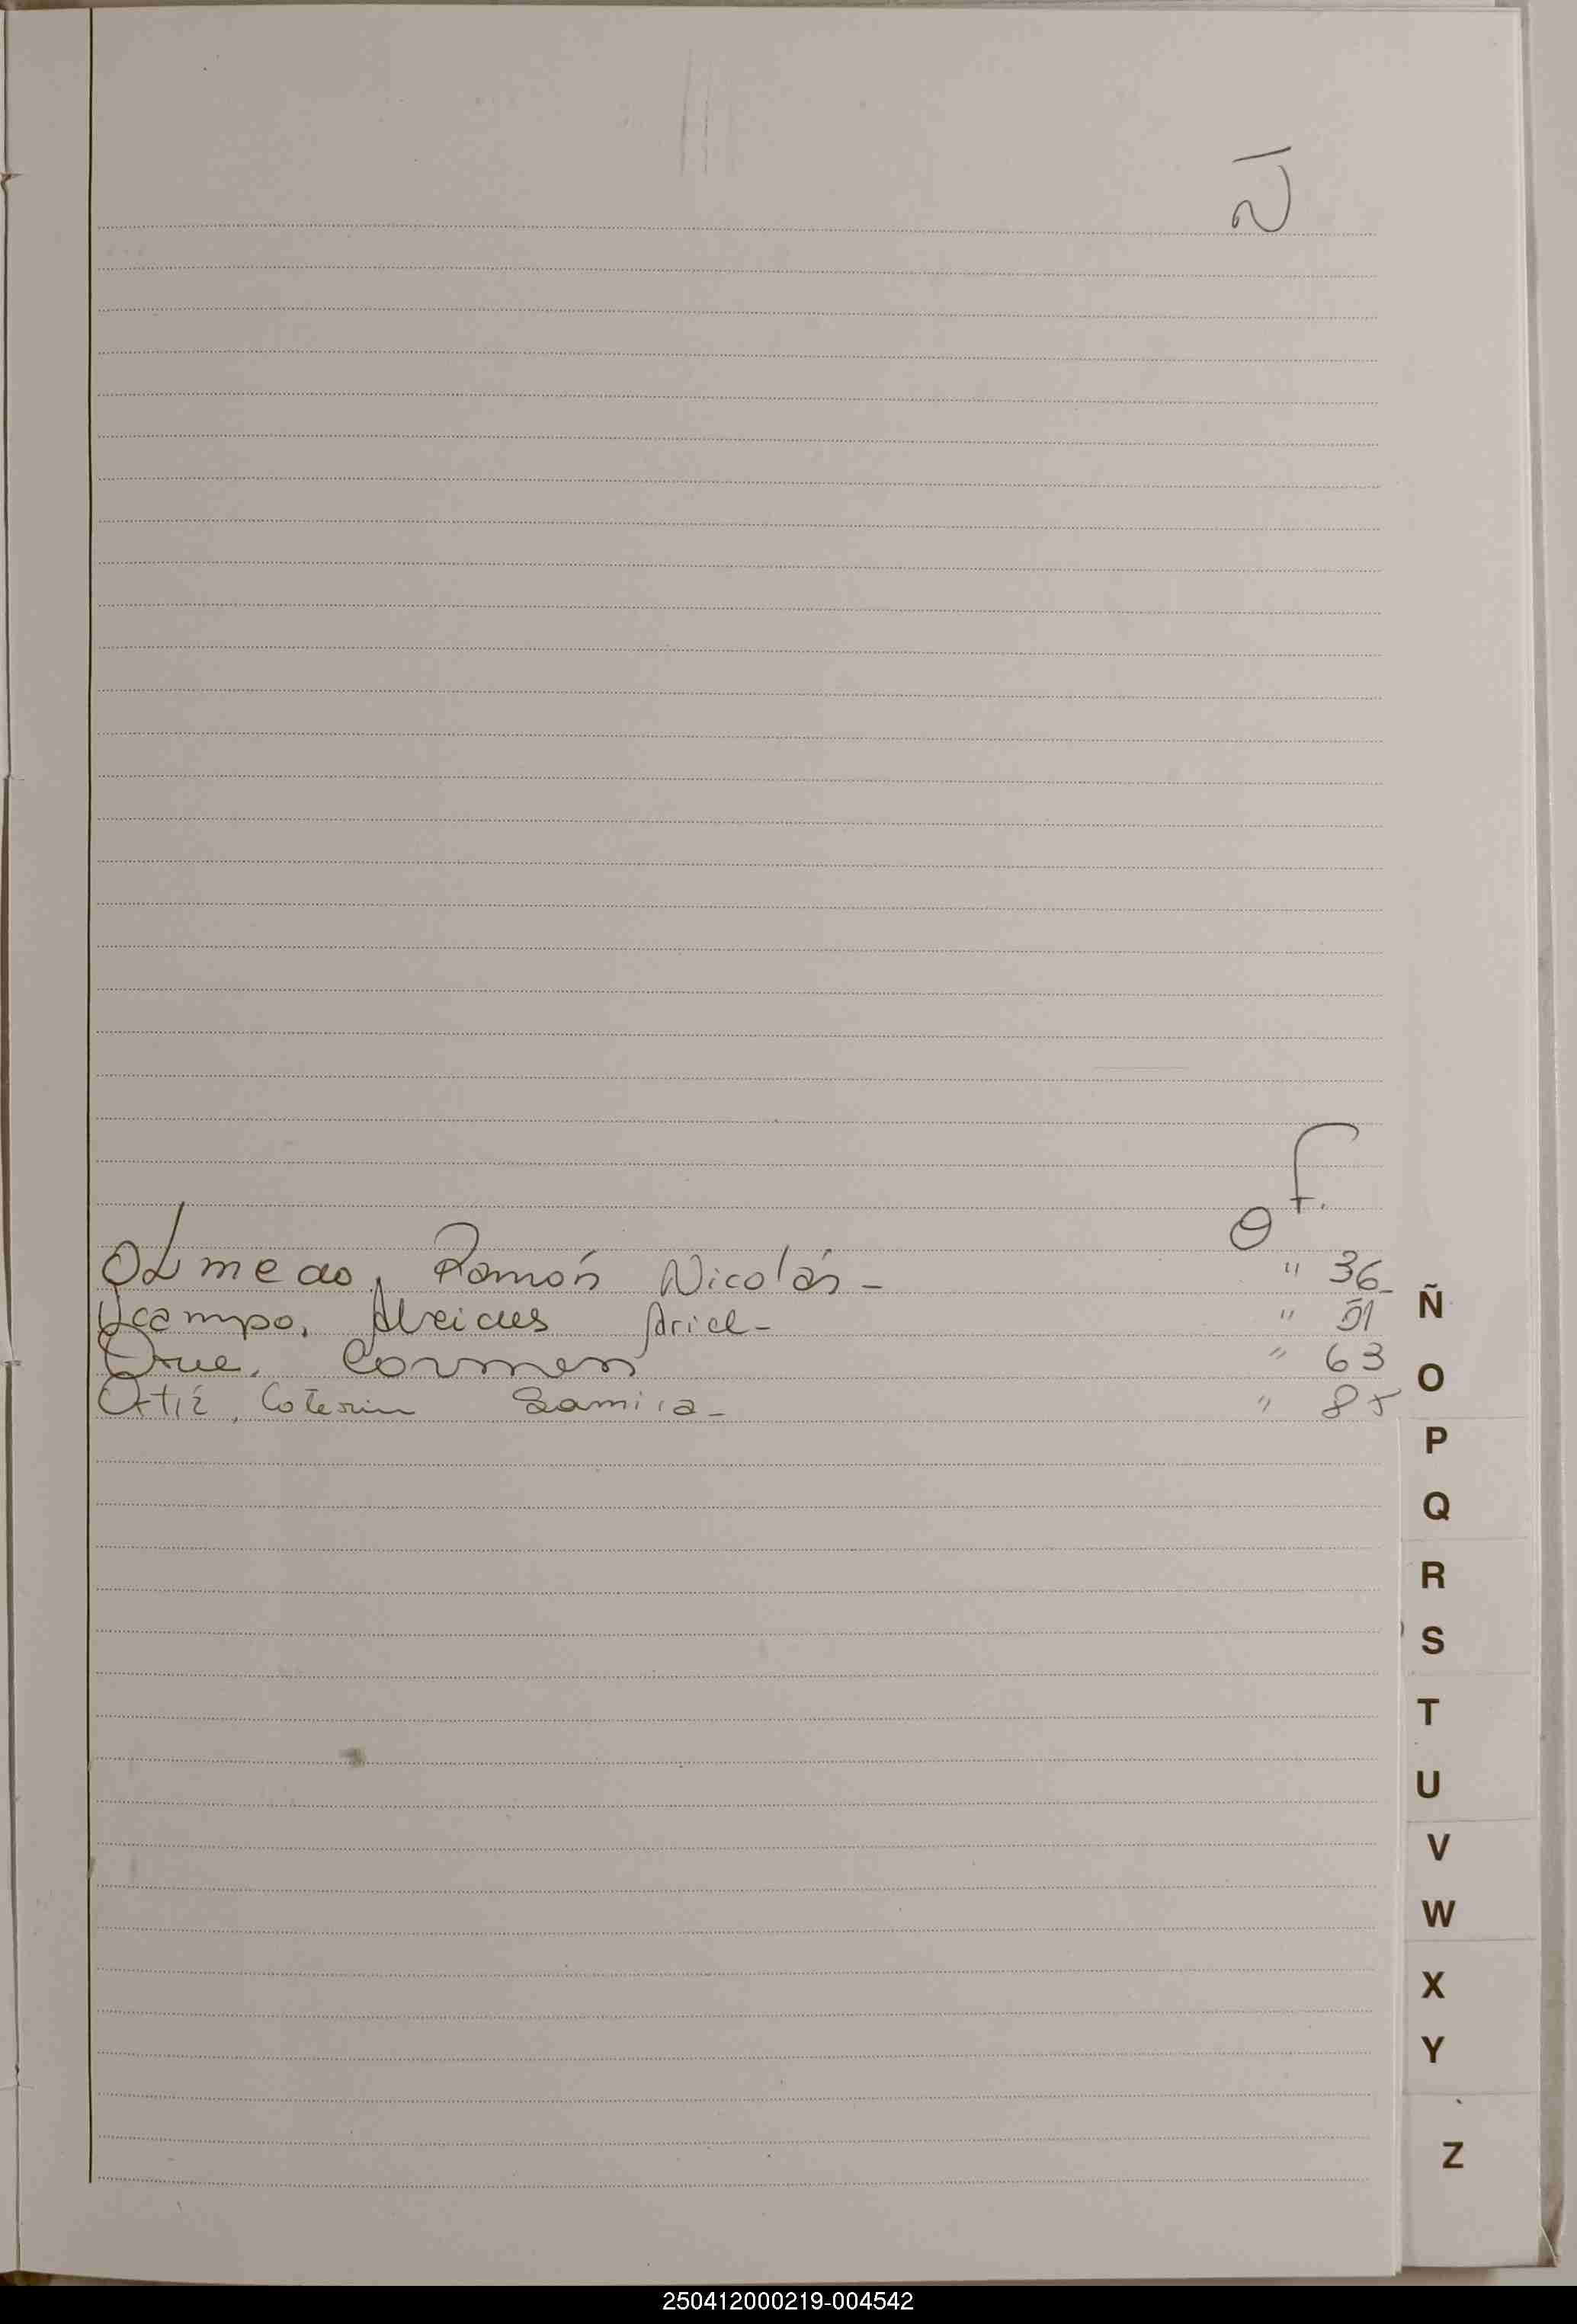 Ñ
f.
O
Olmedo, Ramón Nicolás - " 36-
Ocampo, Alcides Ariel - " 51
Orue, Carmen " 63
Ortíz, Caterin Samira - " 85
Ñ
O
P
Q
R
S
T
U
V
W
X
Y
Z
250412000219-004542